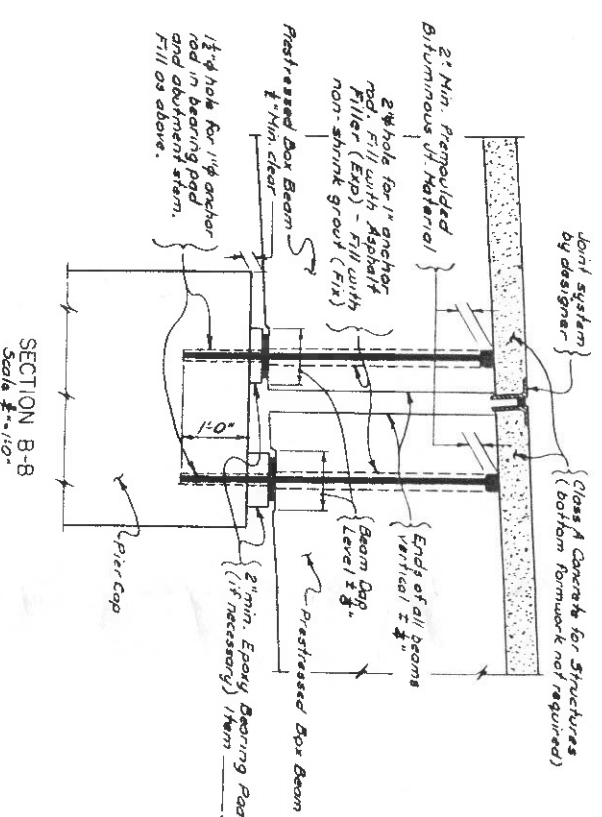 Joint system
by designer
Class A Concrete for Structures
(bottom formwork not required)
2" Min. Premoulded
Bituminous Jt. Material
2"φ hole for 1" anchor
rod. Fill with Asphalt
Filler (Exp) - Fill with
non-shrink grout (Fix)
Ends of all beams
vertical ± 1/4"
Prestressed Box Beam
Beam Dap
Level ± 1/8"
Prestressed Box Beam
1/2" Min. clear
1½"φ hole for 1"φ anchor
rod in bearing pad
and abutment stem.
Fill as above.
1'-0"
2" min. Epoxy Bearing Pad
(if necessary) Item
Pier Cap
SECTION B-B
Scale = 1'-0"